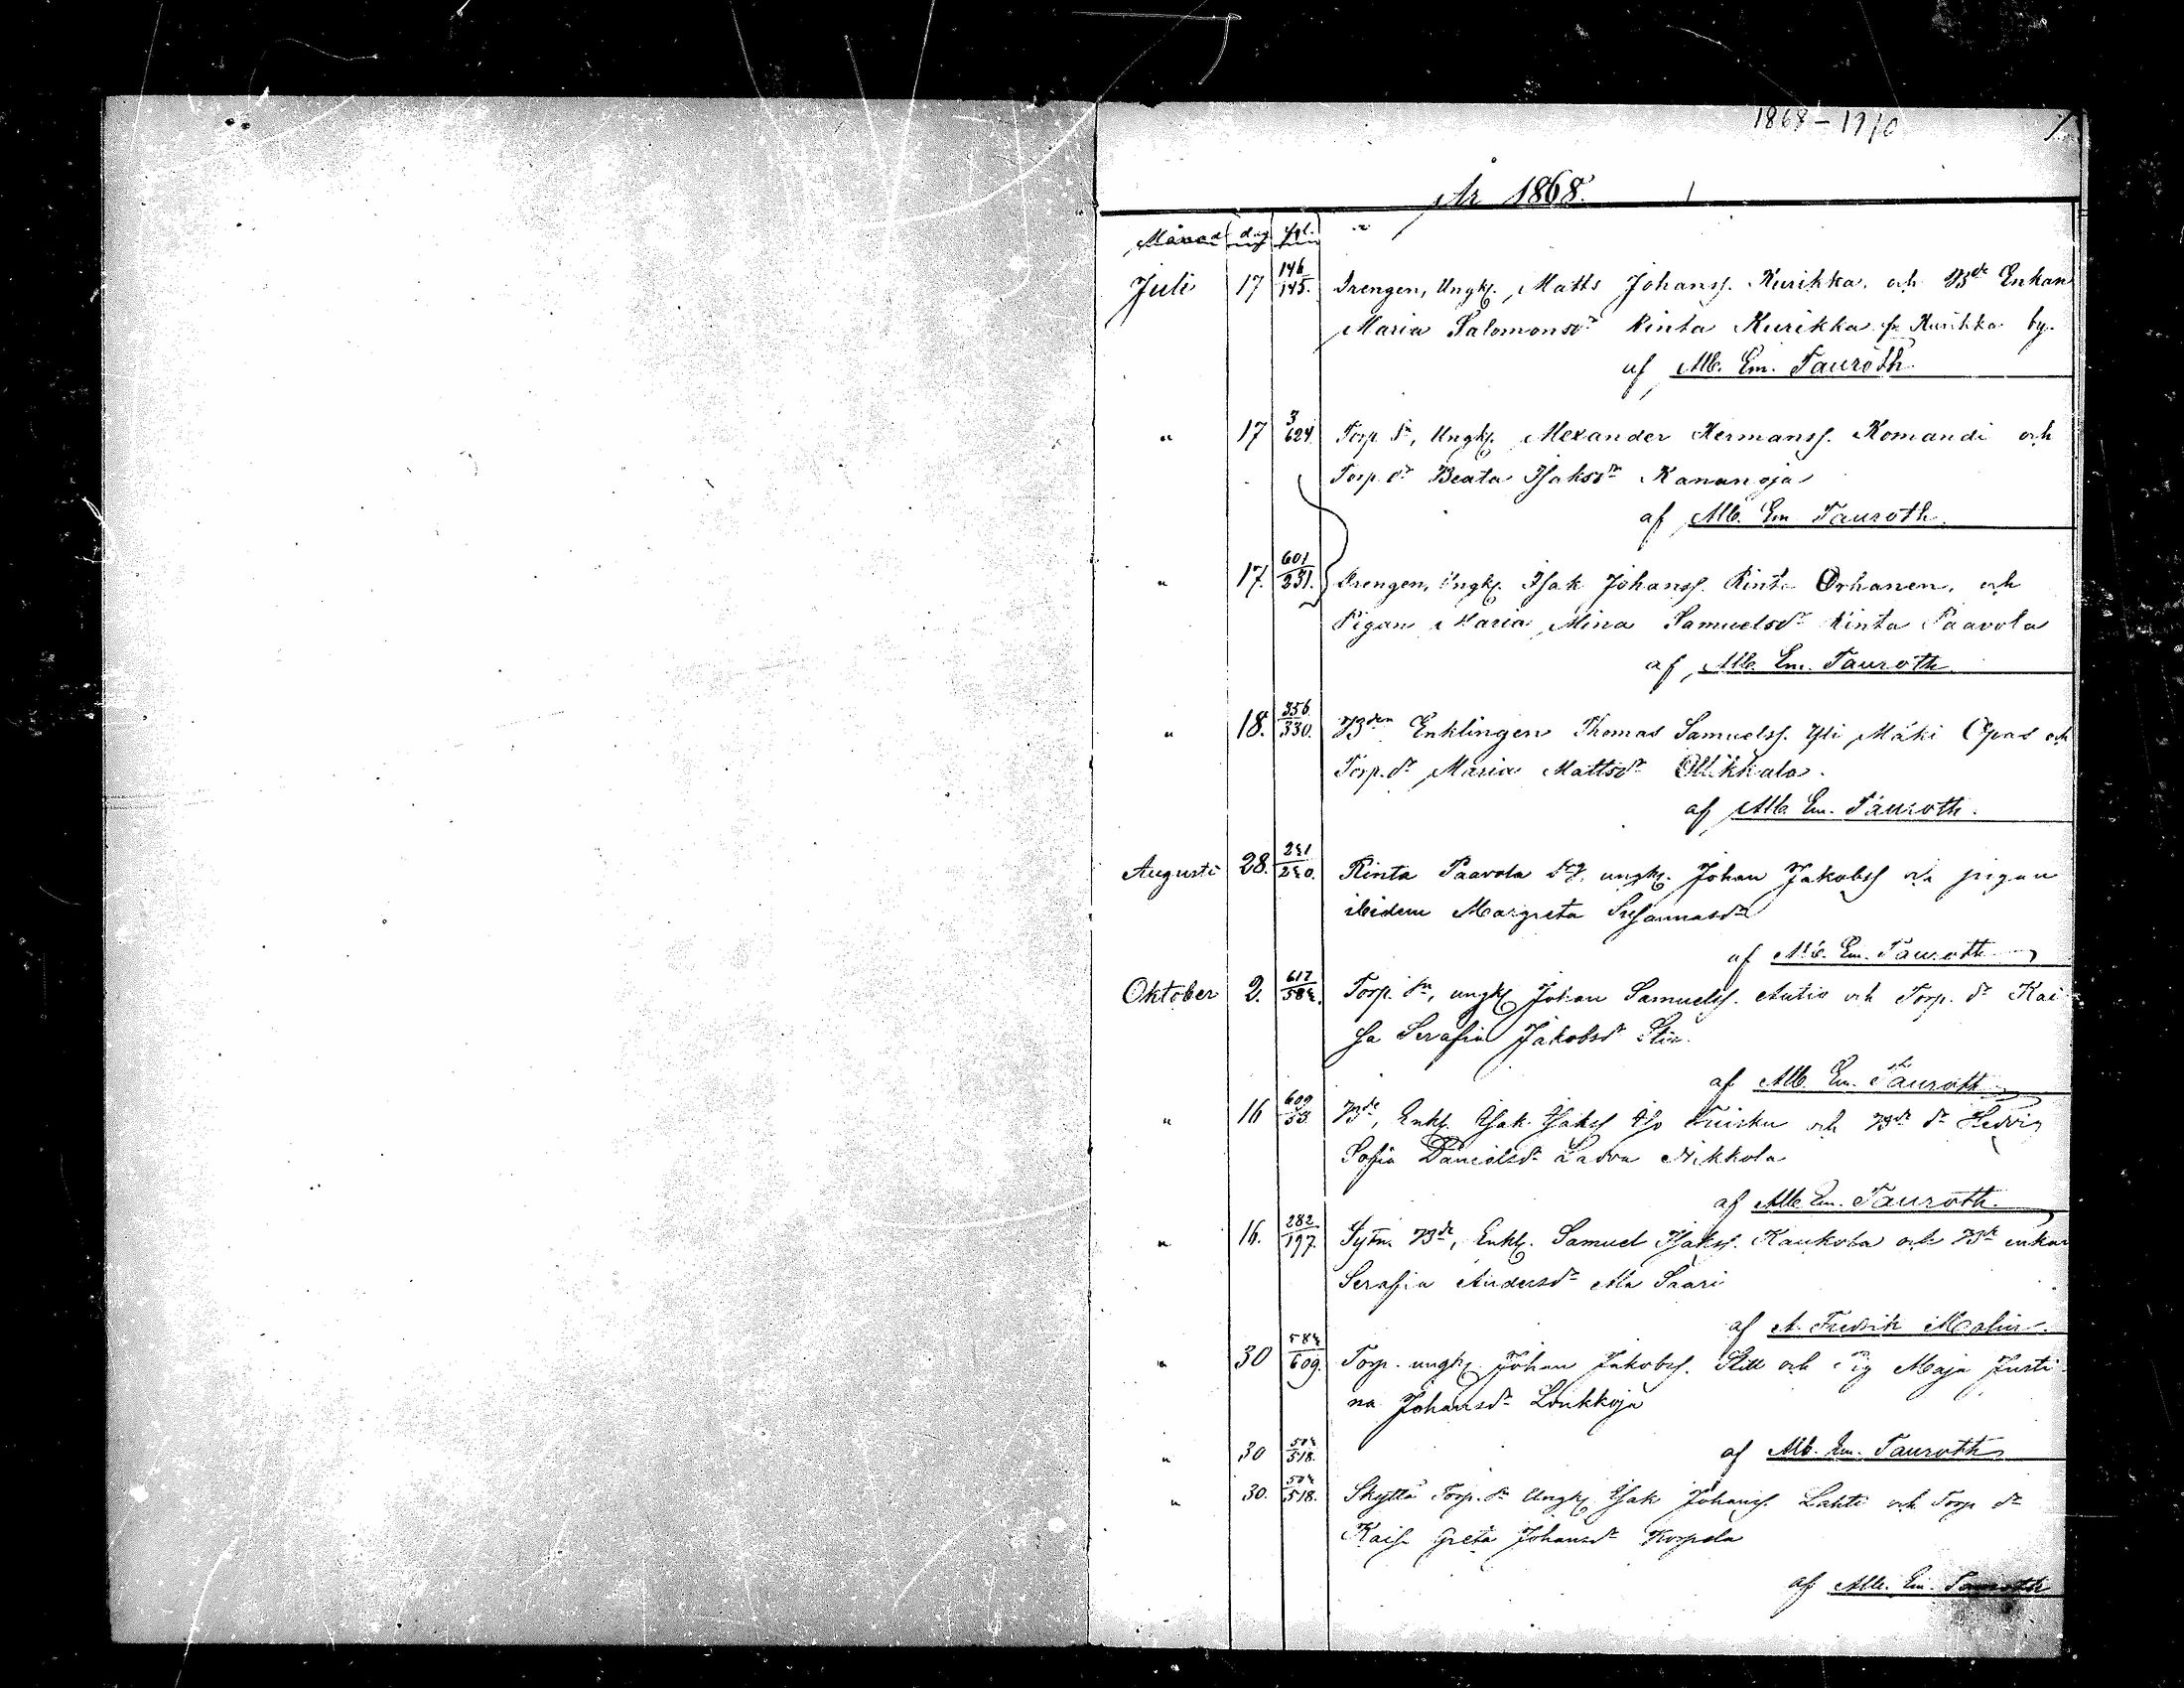 1868-1910
1.
År 1868.
Månad dag
Juli 17 146/145. Drengen, Ungk. Matts Johanss. Kurikka, och Bde Enkan
Maria Salomonsdr Rinta Kurikka fr. Kurikka by.
af Alb. Em. Tauroth.
" 17 3/624. Torp. sn, Ungk. Alexander Hermanss. Komandi och
Torp. dr Beata Isaksdr Kananoja
af Alb. Em. Tauroth.
" 17. 601/231. Drengen, Ungk. Isak Johanss. Rinta Orhanen, och
Pigan Maria Mina Samuelsdr Rinta Paavola
af Alb. Em. Tauroth.
" 18. 356/330. Bden Enklingen Thomas Samuelss. Yli Mäki Opas och
Torp. dr Maria Mattsdr Ollikkala.
af Alb. Em. Tauroth.
Augusti 28. Rinta Paavola drg. ungk. Johan Jakobss och pigan
ibidem Margreta Susannasdr
af Alb. Em. Tauroth
Oktober 2. 612/584. Torp. sn, ungk Johan Samuelss. Autio och Torp. dr Kai-
sa Serafia Jakobsdr
af Alb. Em. Tauroth
" 16 609/53. Bde, Enkl. Isak Isakss Iso Tuisku och Bde dr Hedvig
Sofia Danielsdr Ladva Nikkola
af Alb. Em. Tauroth.
" 16. 282/197. Sytn. Bde, Enkl. Samuel Isakss. Kaukola och Bde enkan
Serafia Andersdr Ala Saari
af A. Fredrik Malin.
" 30 584/609. Torp. ungk. Johan Jakobss. Still och Pig Maja Justi-
na Johansdr Loukkoja
" 30 504/518. af Alb. Em. Tauroth
" 30. 504/518. Skyttä Torp. sn Ungk Isak Johanss. Lahti och Torp dr
Kaisa Greta Johansdr Korpela
af Alb. Em. Tauroth